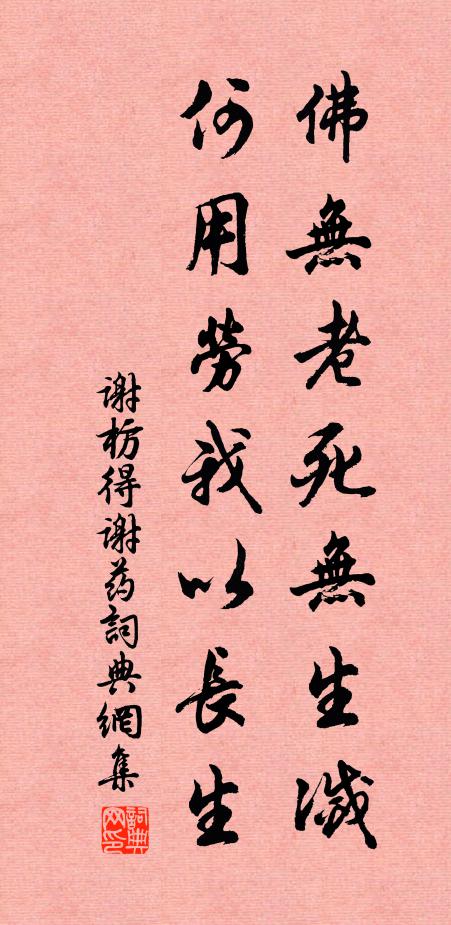 佛無老死無生滅
何用勞我以長生
谢枋得谢药詞典網集
詞典网印